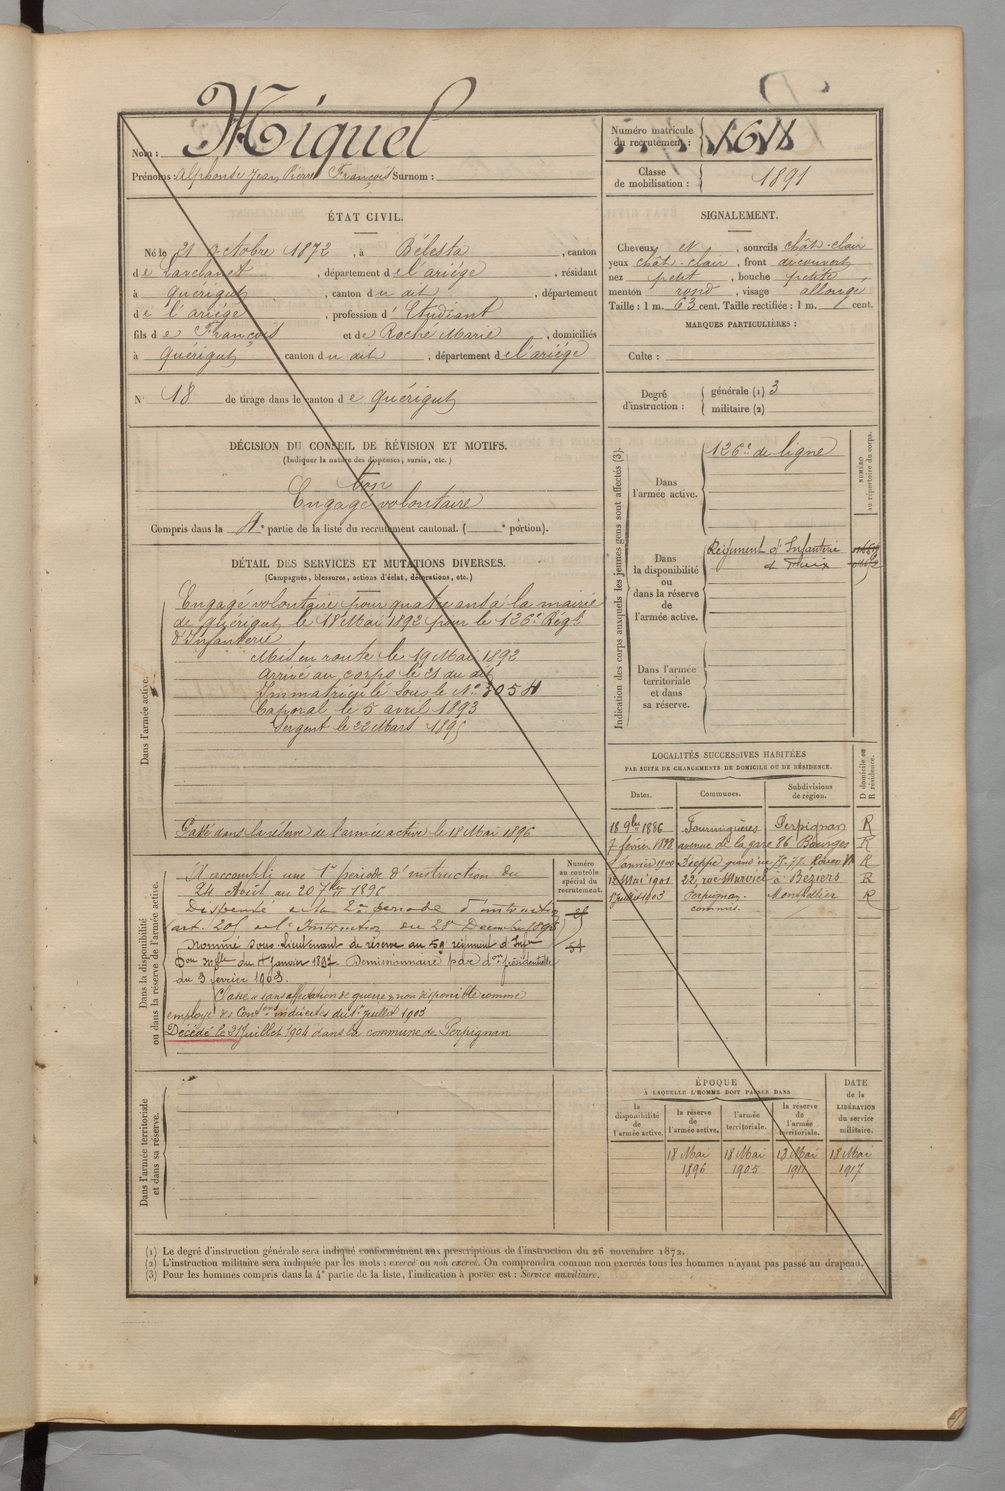 Miquel
Nom :
Prénoms : Alphonse Jean Pierre François Surnom :
Numéro matricule du recrutement : 1618
Classe de mobilisation : 1891
ÉTAT CIVIL.
Né le 21 octobre 1872, à Bélesta, canton
de Lavelanet, département de l'ariége, résidant
à Quérigut, canton du dit, département
de l'ariége, profession d'Etudiant
fils de François et de Roché Marie, domiciliés
à Quérigut canton du dit, département de l'ariége
N° 18 de tirage dans le canton de Quérigut
SIGNALEMENT.
Cheveux et, sourcils chât-clair
yeux chât-clair, front découvert
nez petit, bouche petite
menton rond, visage allongé
Taille : 1 m. 63 cent. Taille rectifiée : 1 m. cent.
MARQUES PARTICULIÈRES :
Culte :
Degré d'instruction : générale (1) 3
militaire (2)
DÉCISION DU CONSEIL DE RÉVISION ET MOTIFS.
(Indiquer la nature des dispenses, sursis, etc.)
bon
Engagé volontaire
Compris dans la 4e partie de la liste du recrutement cantonal. ( e portion).
DÉTAIL DES SERVICES ET MUTATIONS DIVERSES.
(Campagnes, blessures, actions d'éclat, décorations, etc.)
Dans l'armée active.
Engagé volontaire pour quatre ans à la mairie
de Quérigut, le 18 Mai 1892 pour le 126e Régt
d'Infanterie
Mis en route le 19 Mai 1892
arrivé au corps le 21 du dit
Immatriculé sous le No 3054
Caporal le 5 avril 1893
Sergent le 22 Mars 1895
Passé dans la réserve de l'armée active le 18 Mai 1896
Indication des corps auxquels les jeunes gens sont affectés (3).
NUMÉRO au répertoire du corps.
Dans l'armée active.
126e de ligne
Dans la disponibilité ou dans la réserve de l'armée active.
Régiment d'Infanterie
de Foix
Dans l'armée territoriale et dans sa réserve.
LOCALITÉS SUCCESSIVES HABITÉES
PAR SUITE DE CHANGEMENTS DE DOMICILE OU DE RÉSIDENCE.
D domicile ou R résidence.
Dates. Communes. Subdivisions de région.
18 9bre 1896 Formiguères Perpignan R
7 février 1898 avenue de la gare 86 Bourges R
janvier 1900 Dieppe grand'rue Rouen R
Mai 1901 22, rue Murviel à Beziers R
Juillet 1903 Perpignan Montpellier R
commis.
Dans la disponibilité ou dans la réserve de l'armée active.
Numéro au contrôle spécial du recrutement.
A accompli une 1re période d'instruction du
24 Août au 20 7bre 1896
Dispensé de la 2me période d'instruction
(art. 205 de l'Instruction du 28 Décembre 1895)
Nommé sous-lieutenant de réserve au 59 régiment d'Infie
Don mlle du janvier 1897. Démissionnaire par don présidentielle
du 3 fevrier 1903.
Classé "sans affectation de guerre" non disponible comme
employé des Contons indirectes du 1er juillet 1903
Décédé le 21 Juillet 1904 dans la commune de Perpignan
54
Dans l'armée territoriale et dans sa réserve.
ÉPOQUE
À LAQUELLE L'HOMME DOIT PASSER DANS
DATE de la LIBÉRATION du service militaire.
la disponibilité de l'armée active.
la réserve de l'armée active.
l'armée territoriale.
la réserve de l'armée territoriale.
18 Mai 1896
18 Mai 1905
18 Mai 1911
18 Mai 1917
(1) Le degré d'instruction générale sera indiqué conformément aux prescriptions de l'instruction du 26 novembre 1872.
(2) L'instruction militaire sera indiquée par les mots : exercé ou non exercé. On comprendra comme non exercés tous les hommes n'ayant pas passé au drapeau.
(3) Pour les hommes compris dans la 4e partie de la liste, l'indication à porter est : Service auxiliaire.